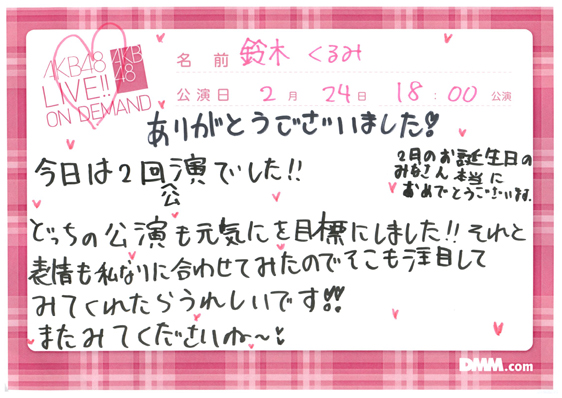 AKB48
LIVE!!
ON DEMAND
AKB
48
名前 鈴木 くるみ
公演日 2月 24日 18:00 公演
ありがとうございました!
今日は2回公演でした!!
2月のお誕生日の
みなさん 本当に
おめでとうございます。
どっちの公演も元気にを目標にしました!! それと
表情も私なりに合わせてみたのでそこも注目して
みてくれたらうれしいです!!
またみてくださいね〜!
DMM.com